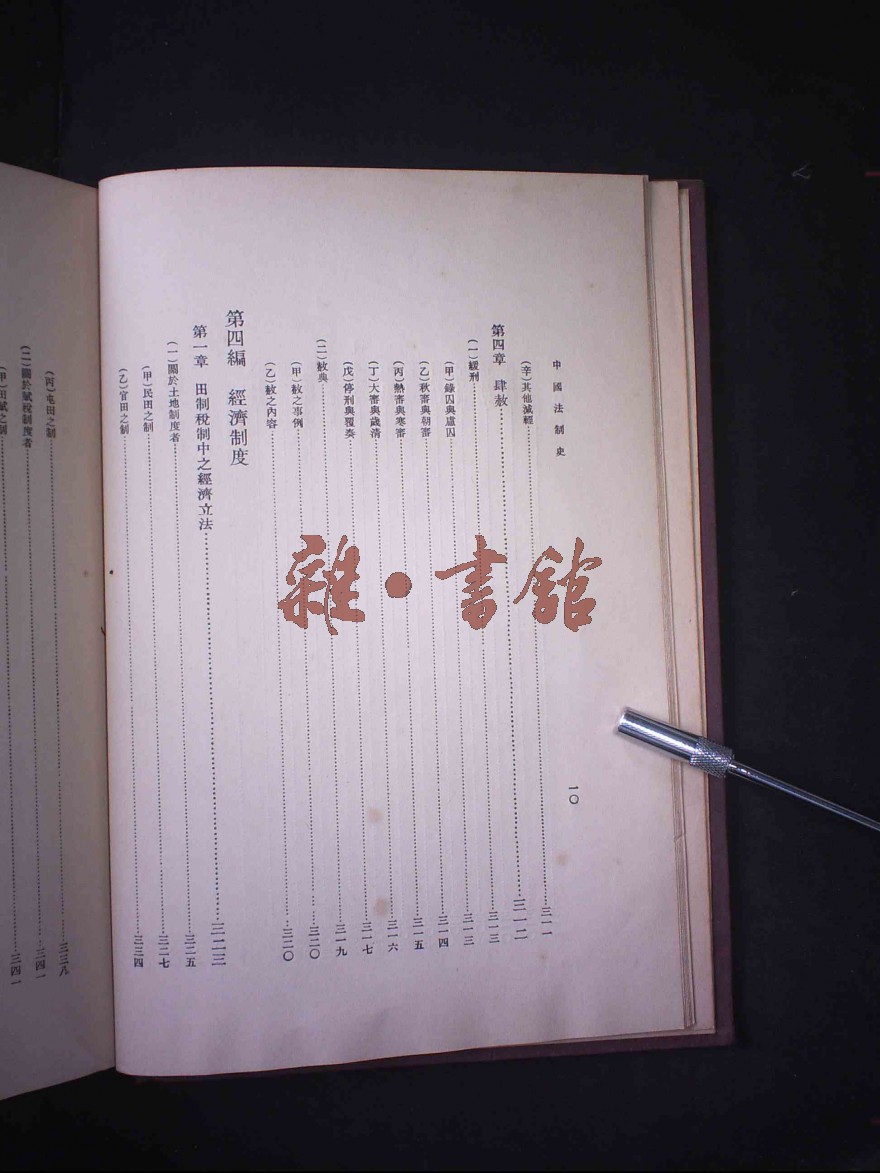 中國法制史
一〇
(辛)其他減輕……三一一
第四章　肆赦……三一二
(一)緩刑……三一三
(甲)錄囚與慮囚……三一三
(乙)秋審與朝審……三一四
(丙)熱審與寒審……三一五
(丁)大審與歲清……三一六
(戊)停刑與覆奏……三一七
(二)赦典……三一九
(甲)赦之事例……三二〇
(乙)赦之內容……三二〇
第四編　經濟制度
第一章　田制稅制中之經濟立法……三二三
(一)關於土地制度者……三二五
(甲)民田之制……三二七
(乙)官田之制……三三四
(丙)屯田之制……三三八
(二)關於賦稅制度者……三四一
(甲)田賦之制……三四一
雜·書館